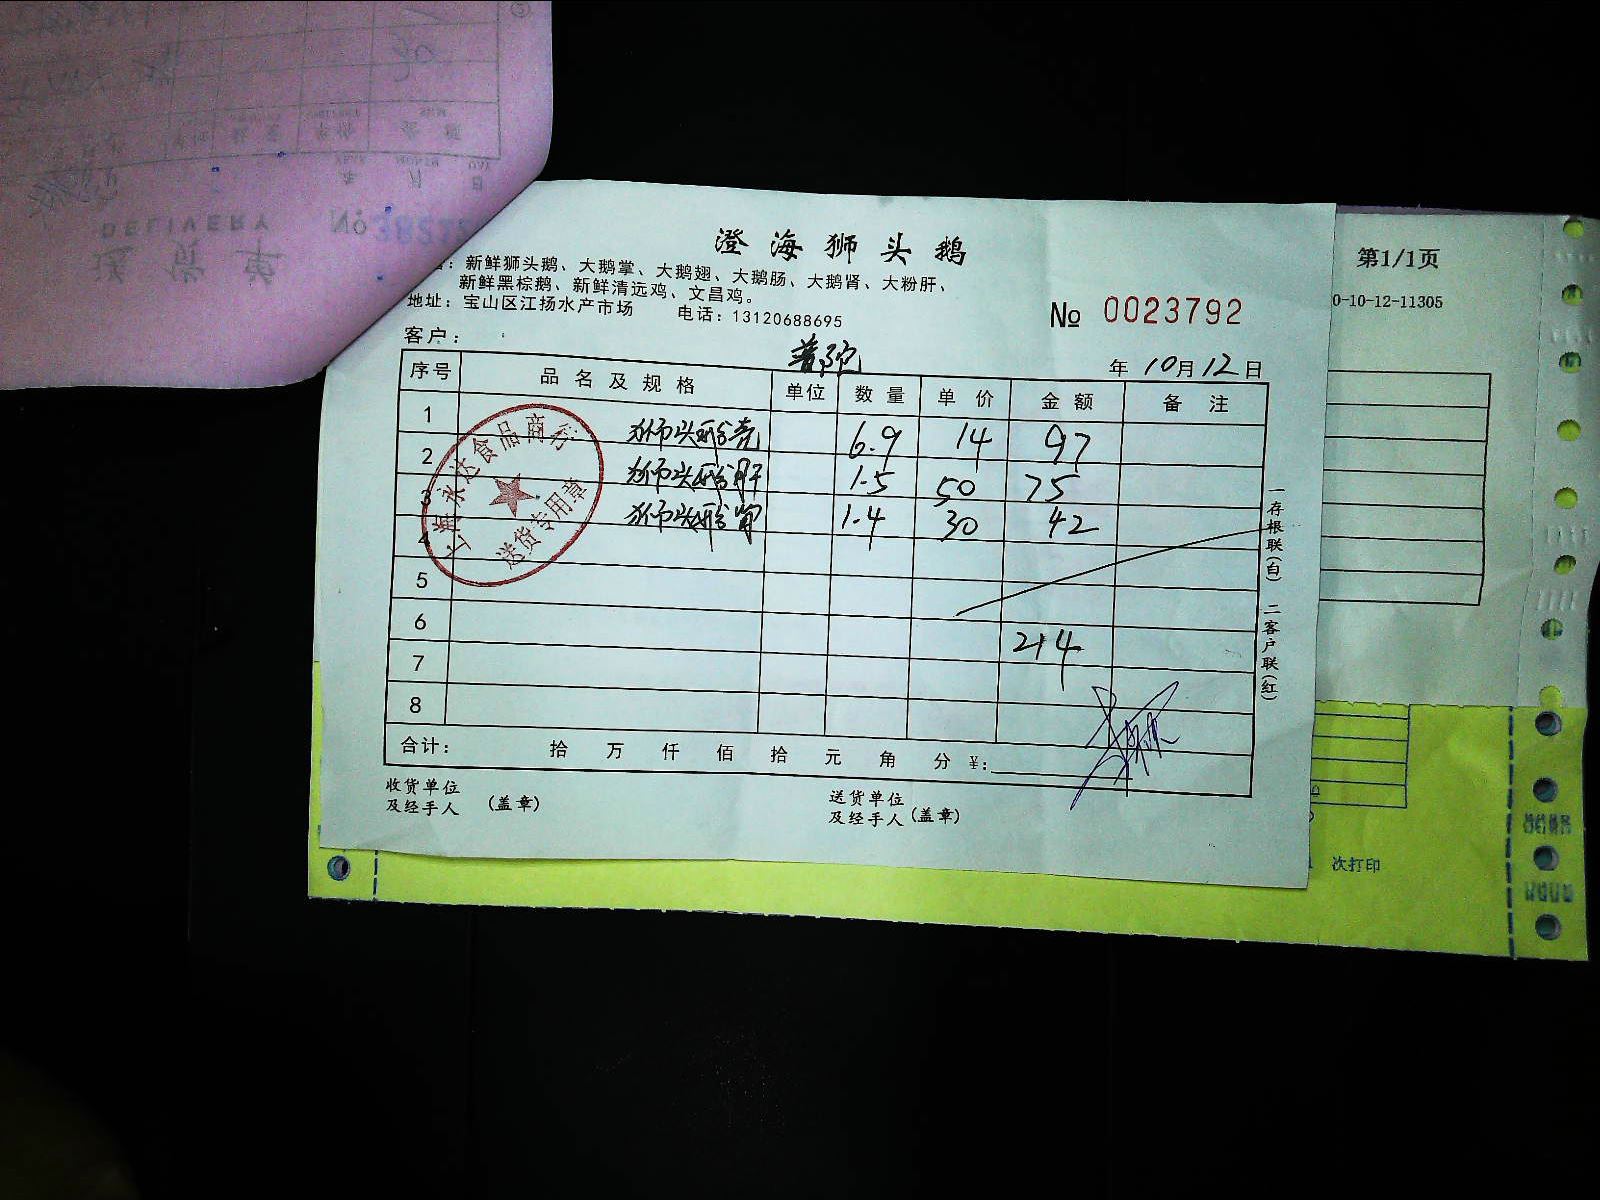 DELIVERY
送货单
No
YEAR MONTH DAY
年 月 日
澄海狮头鹅
：新鲜狮头鹅、大鹅掌、大鹅翅、大鹅肠、大鹅肾、大粉肝、
新鲜黑棕鹅、新鲜清远鸡、文昌鸡。
地址：宝山区江扬水产市场 电话：13120688695
No 0023792
客户：
普陀
年 10月12日
序号 品名及规格 单位 数量 单价 金额 备注
1 狮头鹅壳 6.9 14 97
2 狮头鹅肝 1.5 50 75
3 狮头鹅 1.4 30 42
4
5
6
214
7
8
合计： 拾 万 仟 佰 拾 元 角 分 ¥:
收货单位
及经手人 (盖章)
送货单位
及经手人(盖章)
一存根联(白) 二客户联(红)
上海永达食品商行
送货专用章
第1/1页
0-10-12-11305
次打印